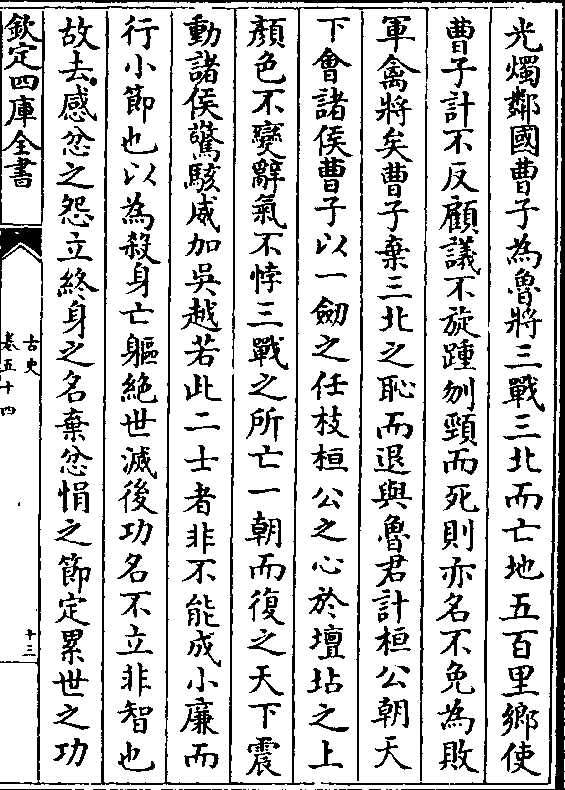 光燭鄰國曹子為魯將三戰三北而亡地五百里鄉使
曹子計不反顧議不旋踵刎頸而死則亦名不免為敗
軍禽將矣曹子棄三北之恥而退與魯君計桓公朝天
下會諸侯曹子以一劒之任枝桓公之心於壇坫之上
顔色不變辭氣不悖三戰之所亡一朝而復之天下震
動諸侯驚駭威加吳越若此二士者非不能成小廉而
行小節也以為殺身亡軀絕世滅後功名不立非智也
故去感忿之怨立終身之名棄忿悁之節定累世之功
欽定四庫全書
古史
卷五十四
十三